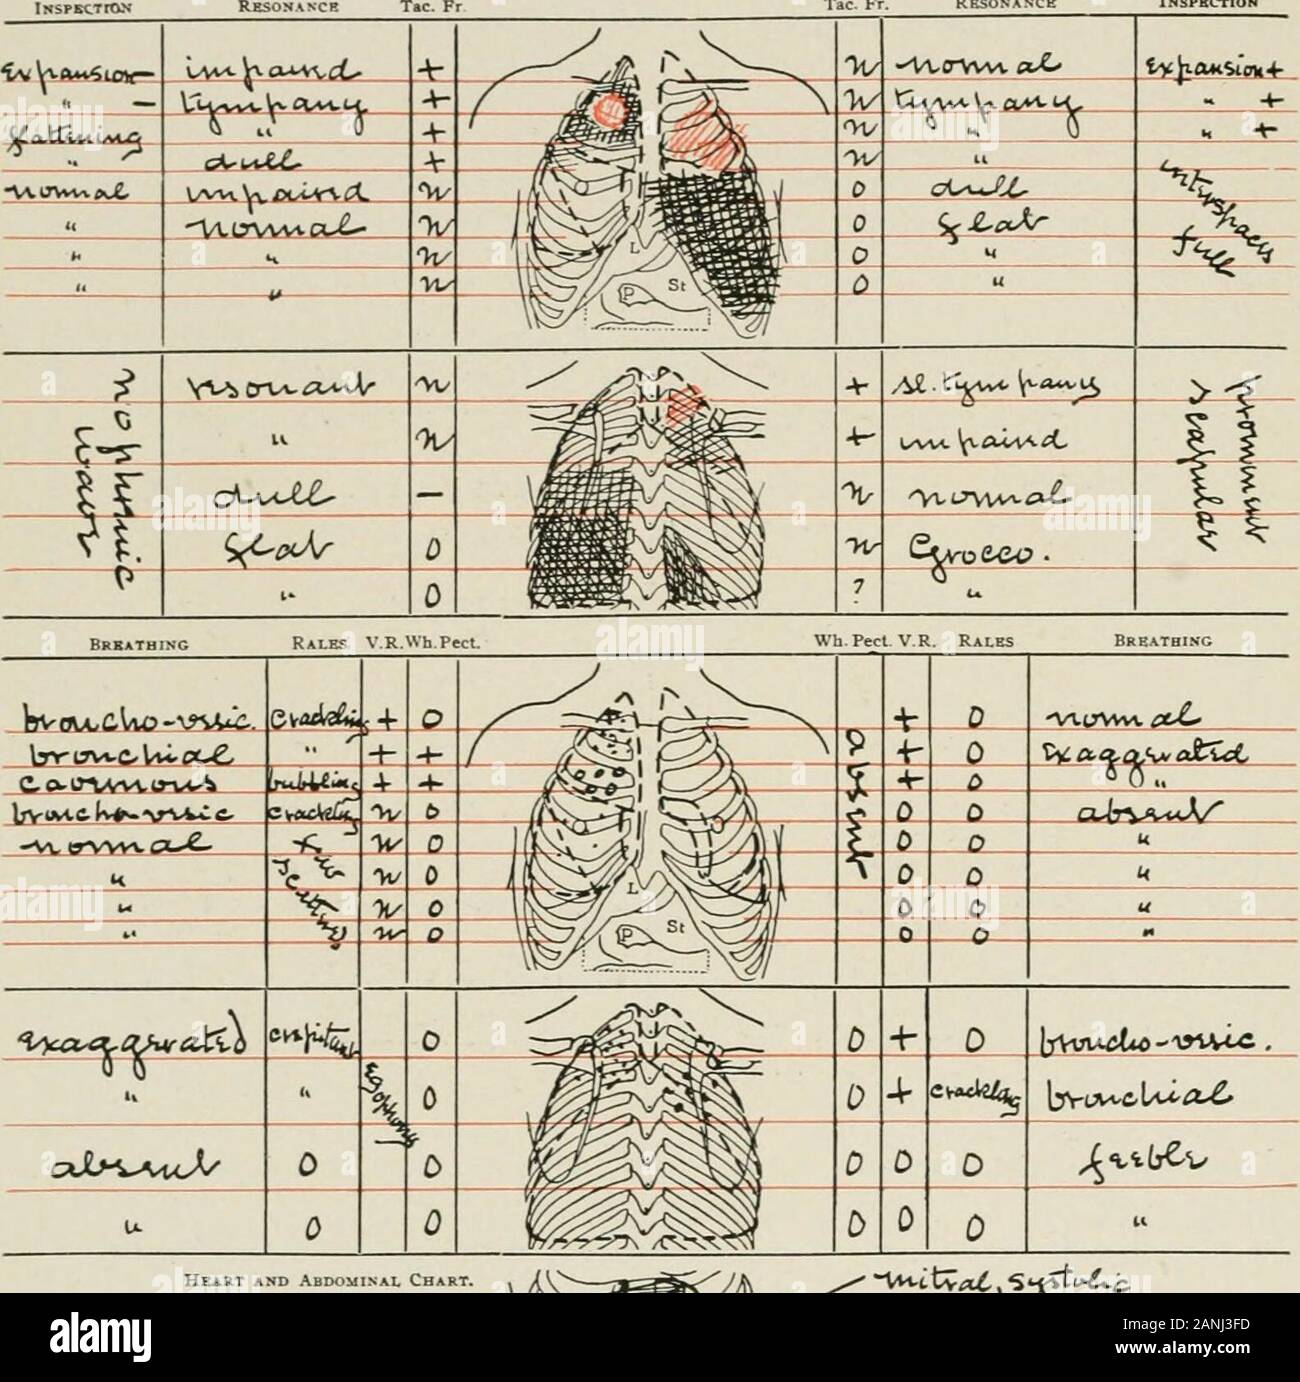 INSPECTION RESONANCE TAC. FR. TAC. FR. RESONANCE INSPECTION
Expansion− impaired + n normal expansion +
" − tympany + n tympany " +
flattening " + n " " +
" dull + n " interspaces full
normal impaired n 0 dull
" normal n 0 flat
" " n 0 "
" " n 0 "
L
P St
no phrenic wave resonant n + sl. tympany prominent scapular
" n + impaired
dull − n normal
flat 0 n Grocco.
" 0 ? "
BREATHING RALES V.R. Wh. Pect. Wh. Pect. V.R. RALES BREATHING
broncho-vesic. crackling + 0 absent + 0 normal
bronchial " + + + 0 exaggerated
cavernous bubbling + + + 0 "
broncho-vesic crackling n 0 0 0 absent
normal few scattered n 0 0 0 "
" n 0 0 0 "
" n 0 0 0 "
" n 0 0 0 "
L
P St
exaggerated crepitant egophony 0 0 + 0 broncho-vesic.
" " 0 0 + crackling bronchial
absent 0 0 0 0 0 feeble
" 0 0 0 0 0 "
HEART AND ABDOMINAL CHART. mitral, systolic
alamy
Image ID: 2ANJ3FD
www.alamy.com